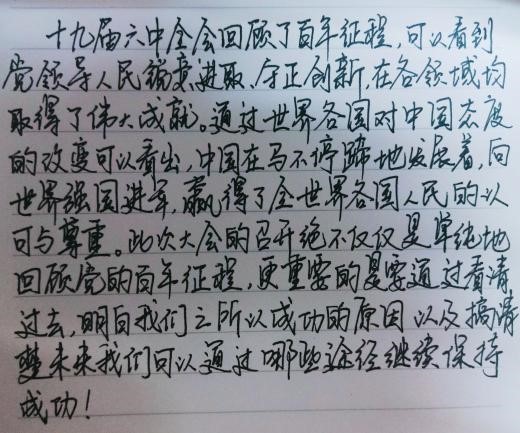 十九届六中全会回顾了百年征程，可以看到
党领导人民锐意进取、守正创新，在各领域均
取得了伟大成就。通过世界各国对中国态度
的改变可以看出，中国在马不停蹄地发展着，向
世界强国进军，赢得了全世界各国人民的认
可与尊重。此次大会的召开绝不仅仅是单纯地
回顾党的百年征程，更重要的是要通过看清
过去，明白我们之所以成功的原因以及搞清
楚未来我们可以通过哪些途径继续保持
成功！